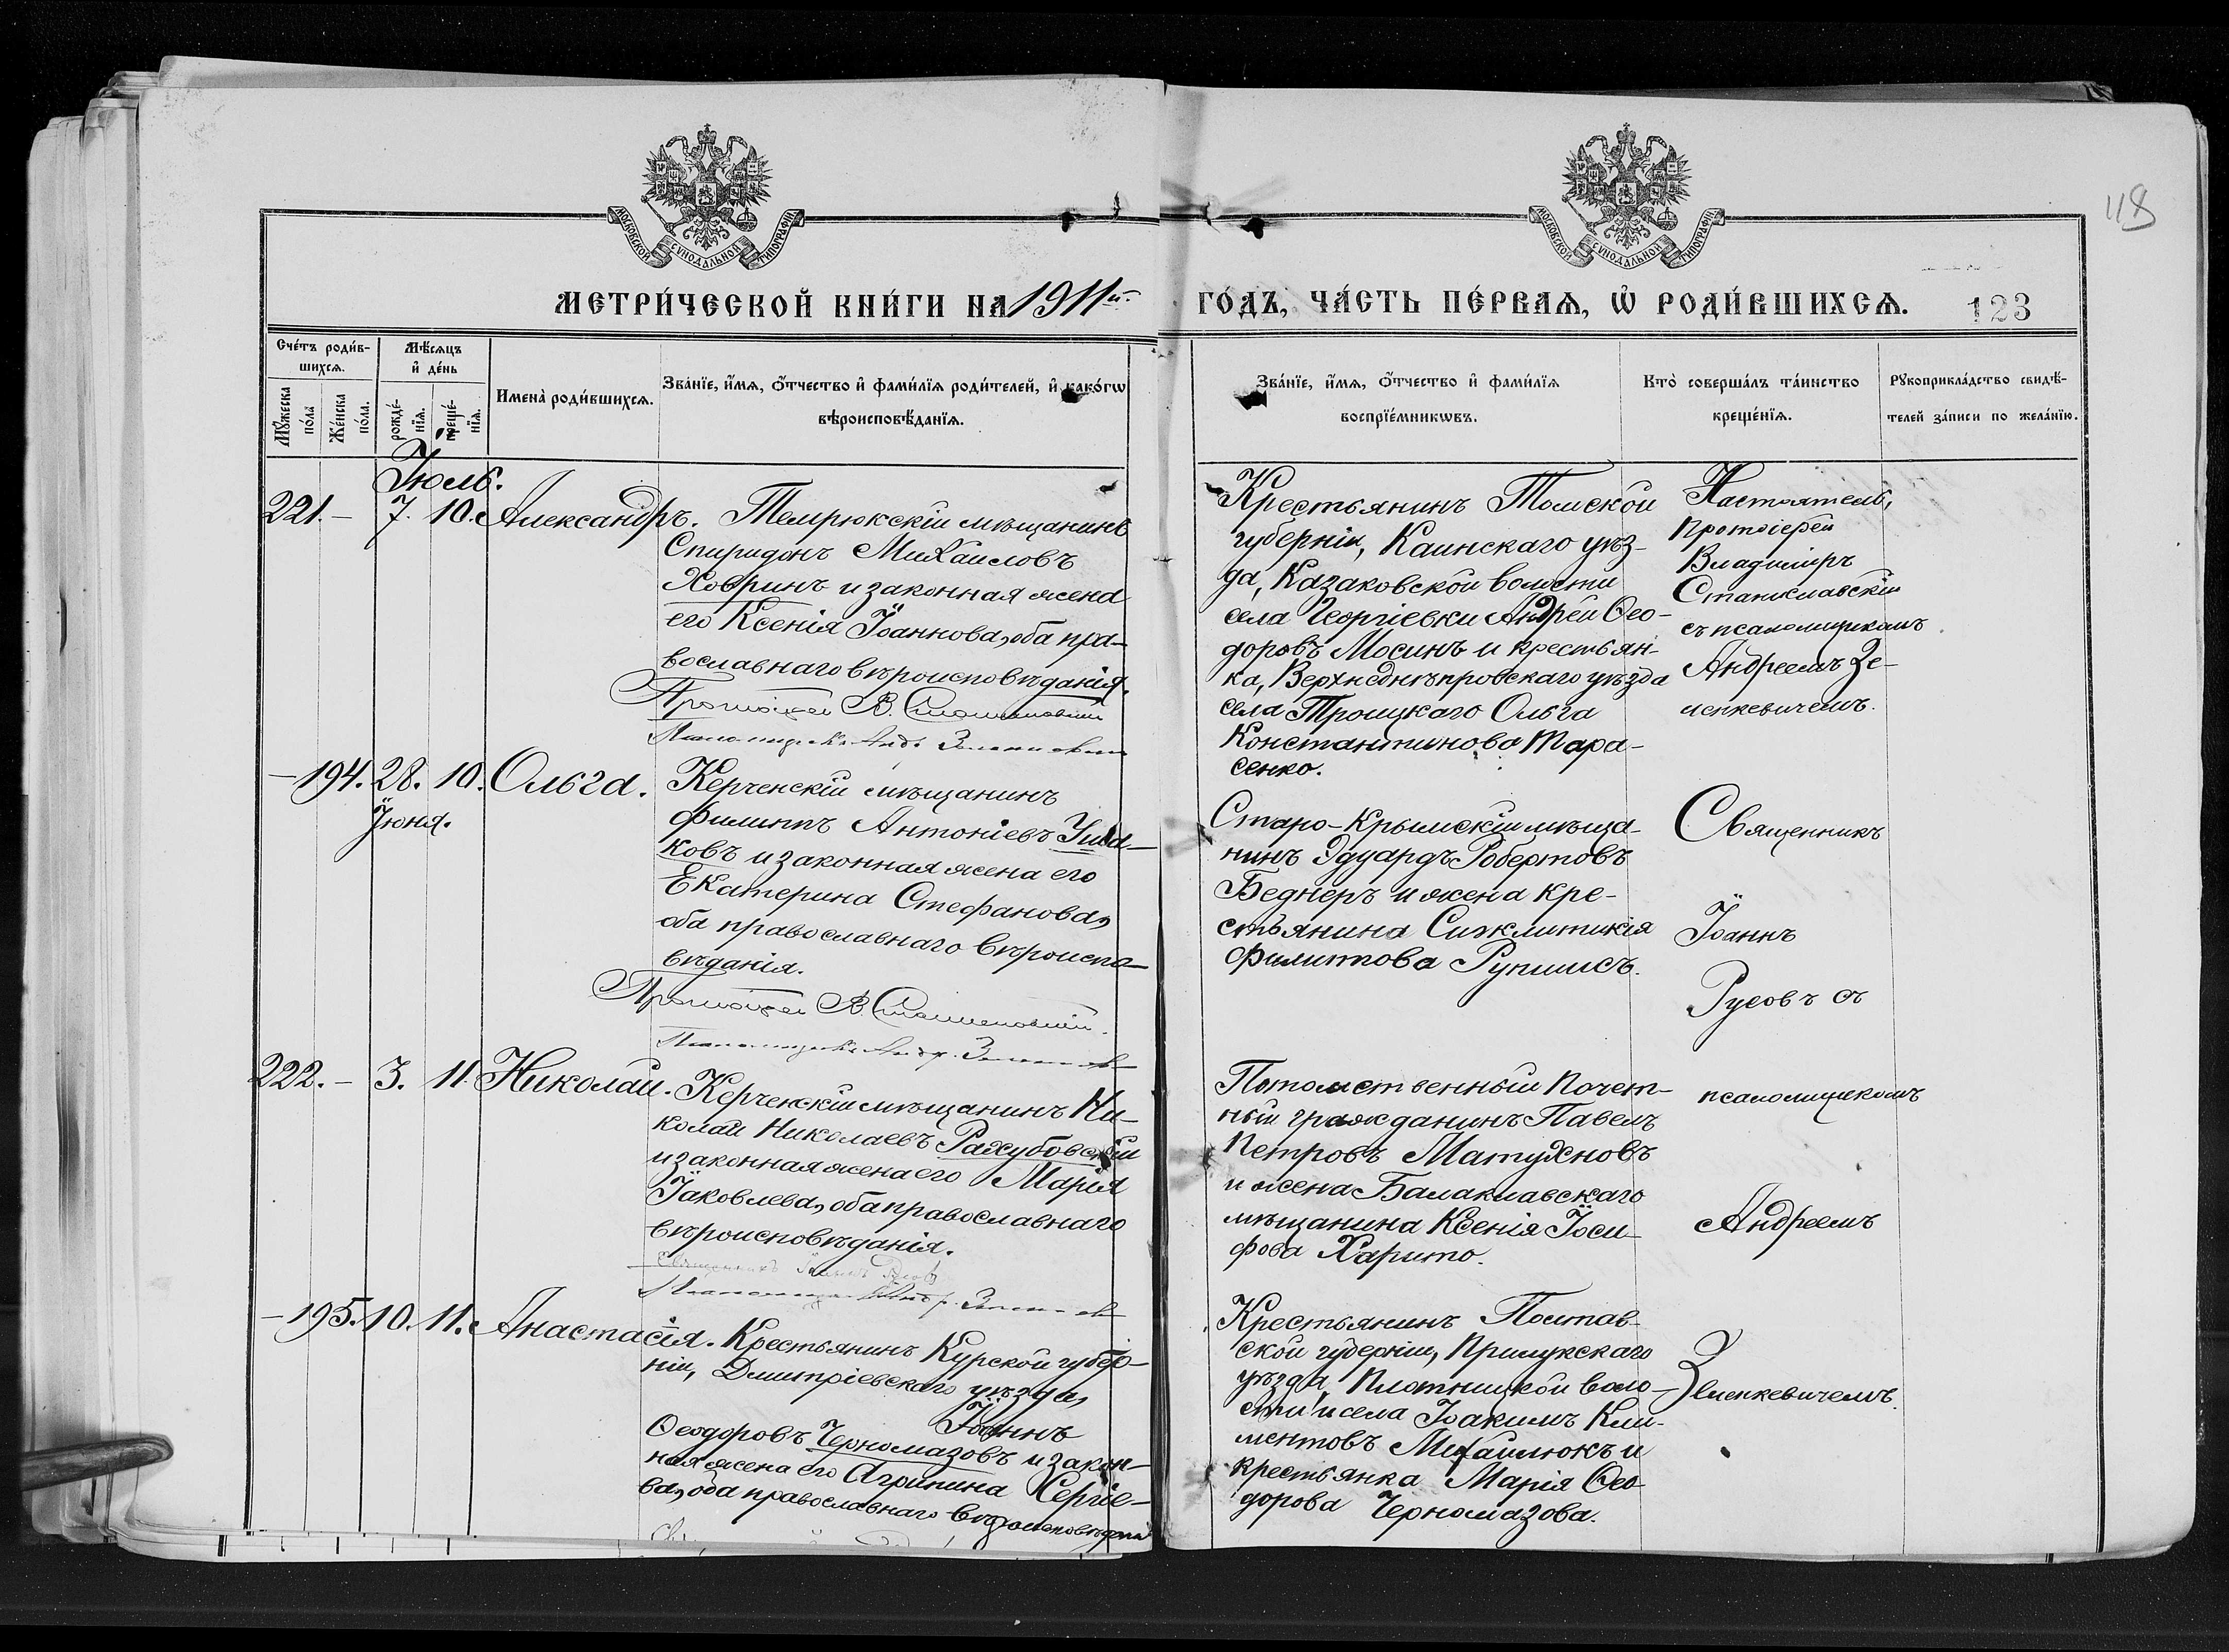 118
МОСКОВСКОЙ СѴНОДАЛЬНОЙ ТИПОГРАФІИ
МОСКОВСКОЙ СѴНОДАЛЬНОЙ ТИПОГРАФІИ
МЕТРИ́ЧЕСКОЙ КНИ́ГИ НА 1911й.
ГО́ДЪ, ЧА́СТЬ ПЕ́РВАЯ, Ѡ҆ РОДИ́ВШИХСѦ. 123
Сче́тъ роди́в-
шихсѧ.
Мѣ́сѧцъ
и҆ де́нь
Мꙋ́жеска
по́ла
Же́нска
по́ла.
рожде́-
нїѧ.
креще́-
нїѧ.
Имена̀ роди́вшихсѧ.
Зва́нїе, и҆́мѧ, ѻ҆́тчество и҆ фами́лїѧ роди́телей, и҆ како́гѡ
вѣроисповѣ́данїѧ.
Зва́нїе, и҆́мѧ, ѻ҆́тчество и҆ фами́лїѧ
воспрїе́мникѡвъ.
Кто̀ соверша́лъ та́инство
креще́нїѧ.
Рꙋкоприкла́дство свидѣ́-
телей за́писи по жела́нїю.
Іюль.
221. – 7. 10. Александръ. Темрюкскій мѣщанинъ
Спиридонъ Михайловъ
Ховринъ и законная жена
его Ксенія Іоаннова, оба пра-
вославнаго вѣроисповѣданія.
Протоіерей В. Станиславскій
Псаломщикъ Андр. Зеленкевичъ
Крестьянинъ Томской
губерніи, Каинскаго уѣз-
да, Казаковской волости
села Георгіевки Андрей Ѳео-
доровъ Мосинъ и крестьян-
ка, Верхнеднѣпровскаго уѣзда
села Троицкаго Ольга
Константинова Тара-
сенко.
Настоятель,
Протоіерей
Владиміръ
Станиславскій
съ псаломщикомъ
Андреемъ Зе-
ленкевичемъ.
– 194. 28. 10. Ольга.
Іюня.
Керченскій мѣщанинъ
Филиппъ Антоніевъ Уша-
ковъ и законная жена его
Екатерина Стефанова,
оба православнаго вѣроиспо-
вѣданія.
Протоіерей В. Станиславскій.
Псаломщикъ Андр. Зеленкевичъ
Старо-Крымскій мѣща-
нинъ Эдуардъ Робертовъ
Беднеръ и жена кре-
стьянина
Филиппова
Священникъ
Іоаннъ
Русовъ съ
псаломщикомъ
Андреемъ
Зеленкевичемъ.
222. – 3. 11. Николай. Керченскій мѣщанинъ Ни-
колай Николаевъ Рахубовскій
и законная жена его Марія
Іаковлева, оба православнаго
вѣроисповѣданія.
Священникъ Іоаннъ Русовъ
Псаломщикъ Андр. Зеленкевичъ
Потомственный почет-
ный гражданинъ Павелъ
Петровъ Матухновъ
и жена Балаклавскаго
мѣщанина Ксенія Іоси-
фова Харито.
– 195. 10. 11. Анастасія. Крестьянинъ Курской губер-
ніи, Дмитріевскаго уѣзда,
Іоаннъ
Ѳеодоровъ Черномазовъ и закон-
ная жена его Агрипина Сергіе-
ва, оба православнаго вѣроисповѣданія
Крестьянинъ Полтав-
ской губерніи, Прилукскаго
уѣзда, Плотницкой воло-
сти и села Іоакимъ Кли-
ментовъ Михайлюкъ и
крестьянка Марія Ѳео-
дорова Черномазова.